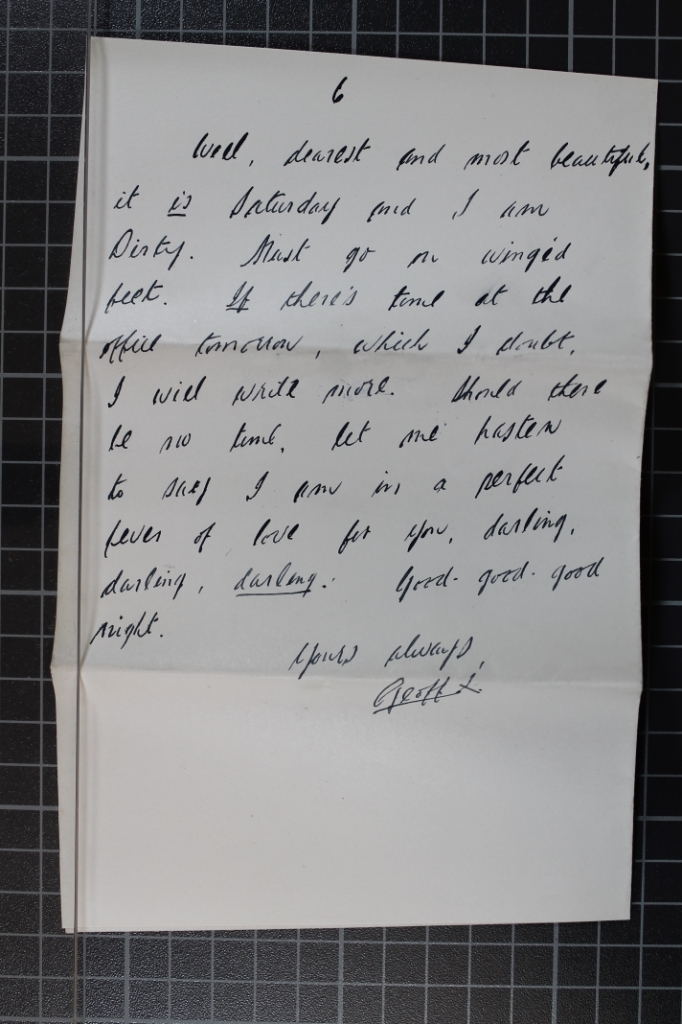 6
Well, dearest and most beautiful,
it is Saturday and I am
Dirty. Must go on wingéd
feet. If there's time at the
office tomorrow, which I doubt,
I will write more. Should there
be no time, let me hasten
to say I am in a perfect
fever of love for you, darling,
darling, darling. Good-good-good
night.
Yours always,
Geoff X